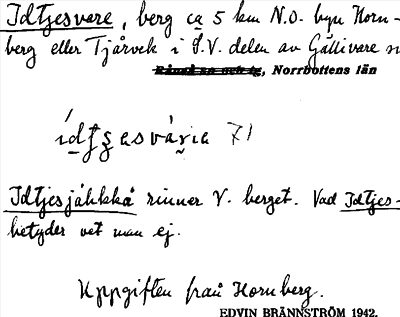 Idtjesvare, berg ca 5 km N.O. byn Horn-
berg eller Tjårvek i S.V. delen av Gällivare
, Norrbottens län
ídt̜ʒ̜asvàri̯e 71
Idtjesjåhkkå rinner V. berget. Vad Idtjes-
betyder vet man ej.
Uppgiften från Hornberg.
EDVIN BRÄNNSTRÖM 1942.